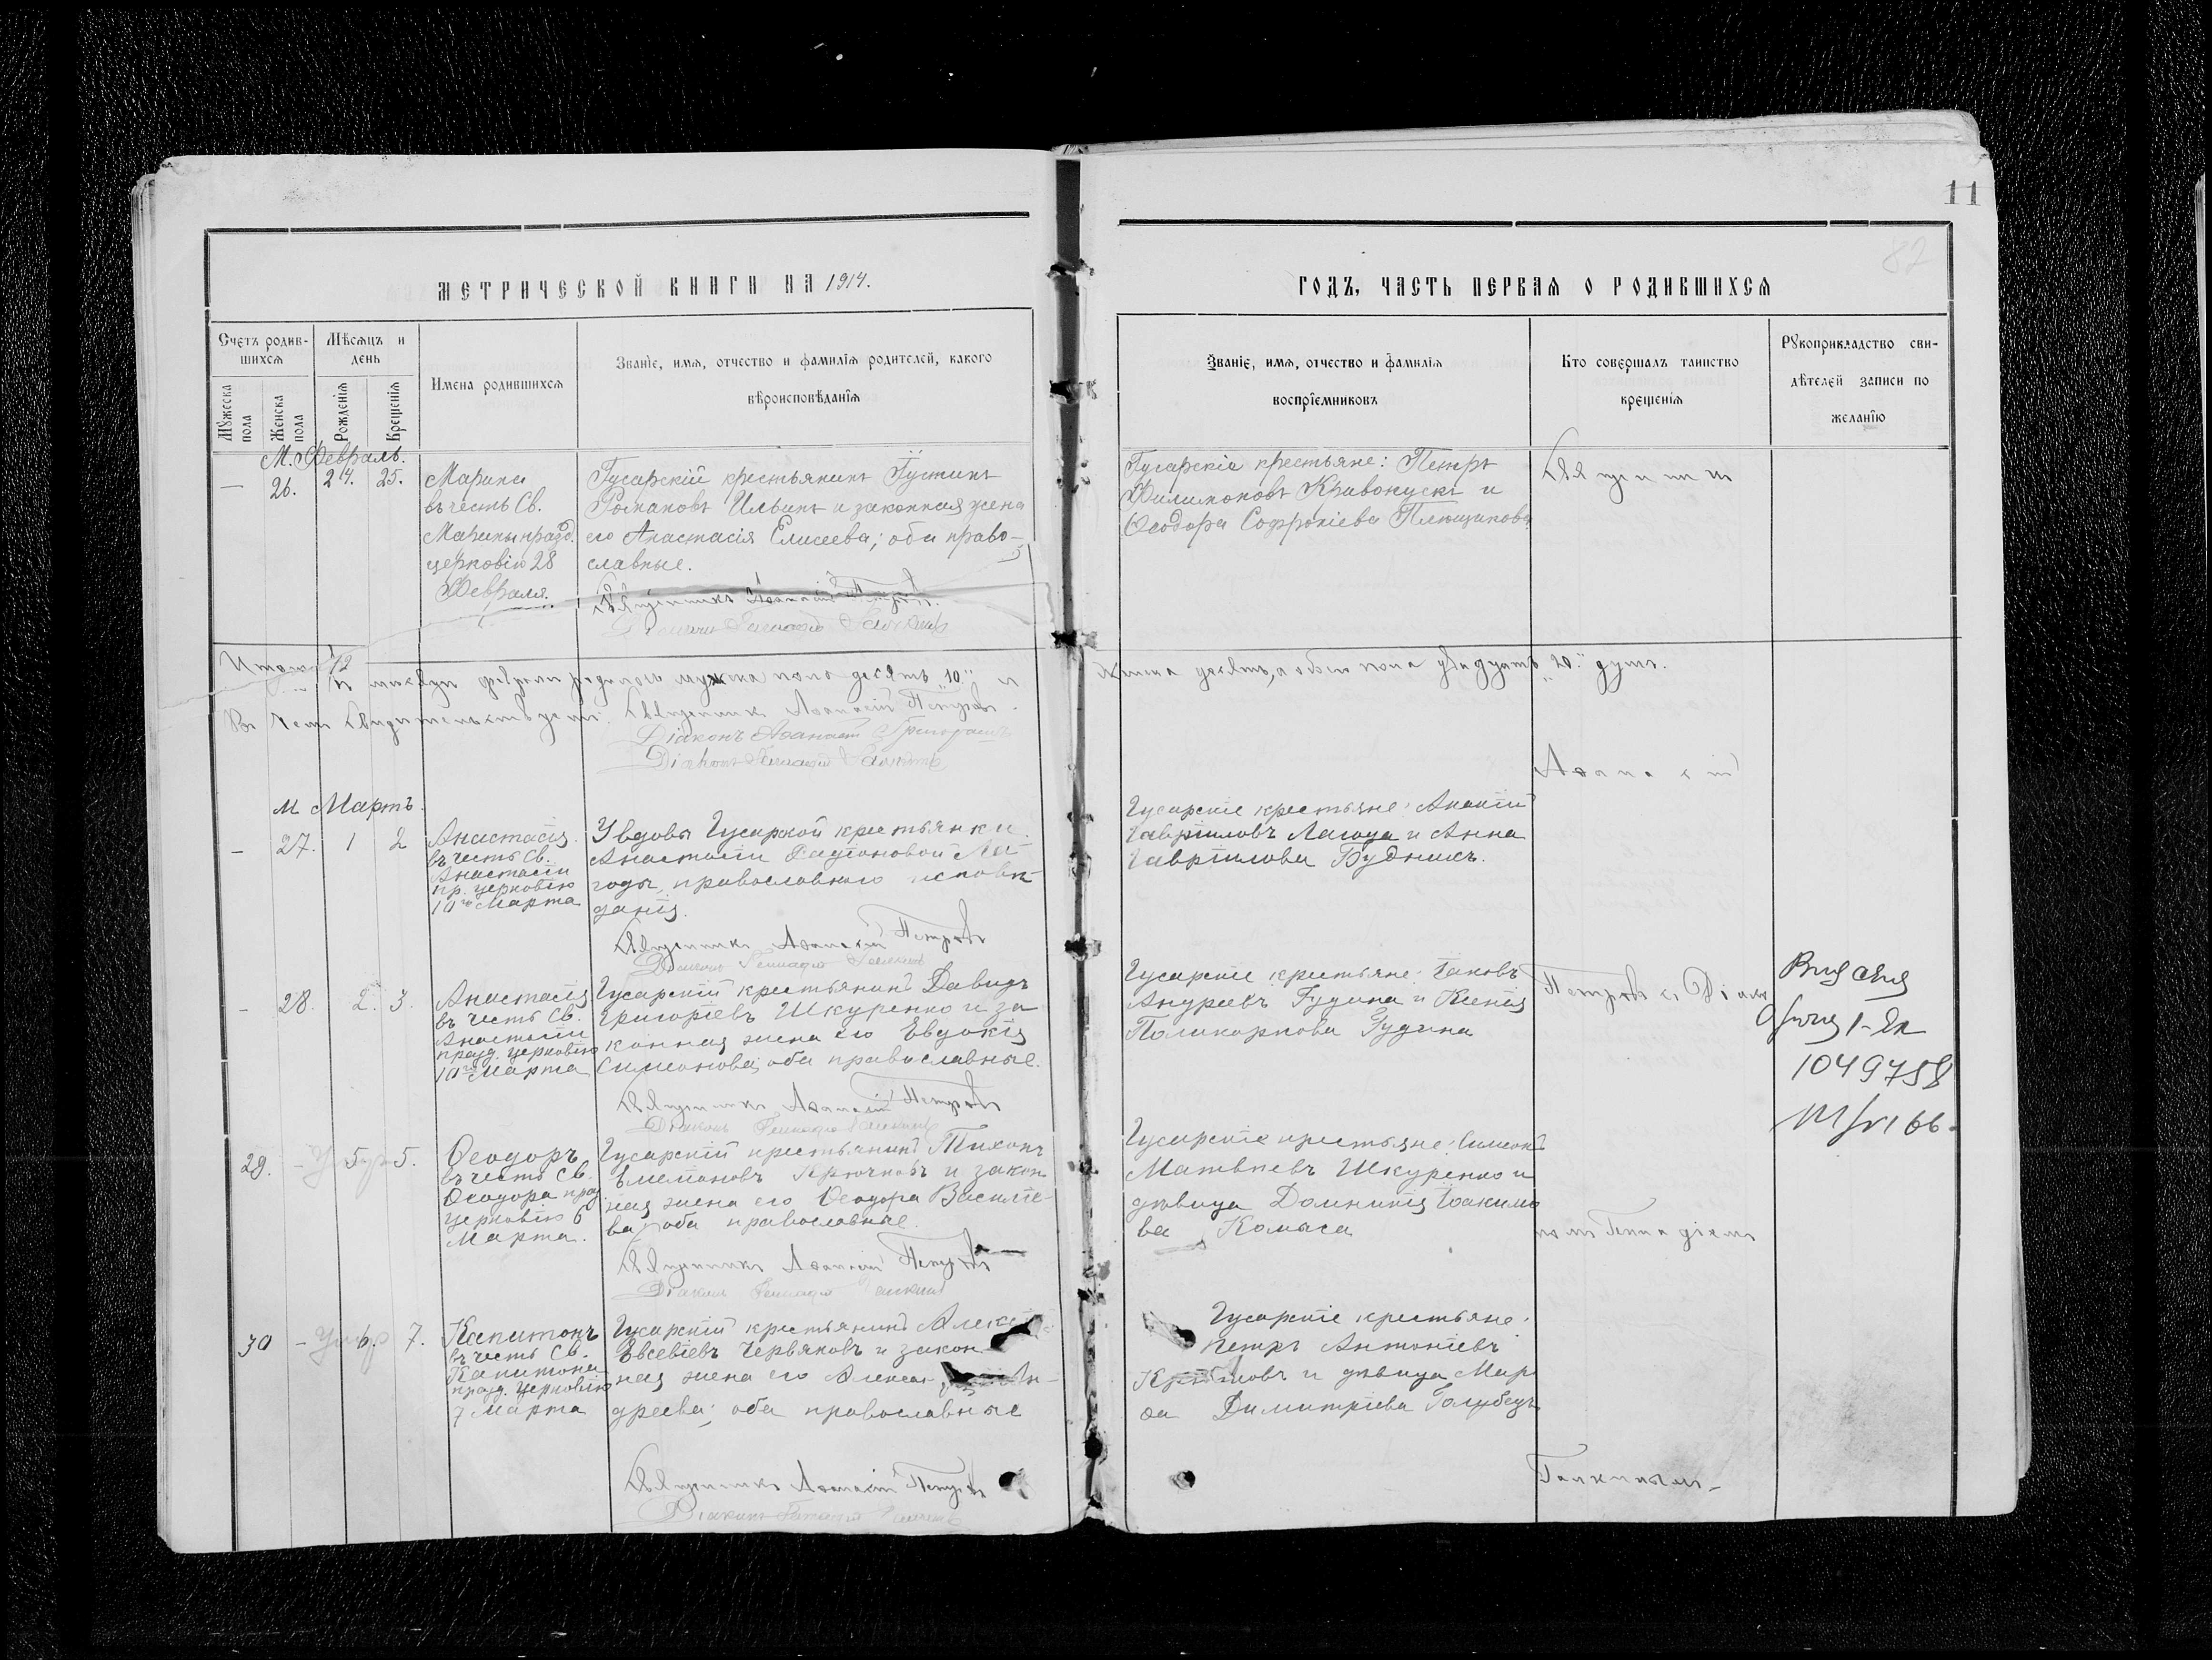 11
82
МЕТРИЧЕСКОЙ КНИГИ НА 1914.
ГОДЪ, ЧАСТЬ ПЕРВАЯ О РОДИВШИХСЯ
Счетъ родив-
шихся
Мѣсяцъ и
день
Мужеска
пола
Женска
пола
Рожденія
Крещенія
Имена родившихся
Званіе, имя, отчество и фамилія родителей, какого
вѣроисповѣданія
Званіе, имя, отчество и фамилія
воспріемниковъ
Кто совершалъ таинство
крещенія
Рукоприкладство сви-
дѣтелей записи по
желанію
М. Февраль.
— 26. 24. 25.
Марина
въ честь Св.
Марины празд.
церковію 28
Февраля.
Гусарскій крестьянинъ Іустинъ
Романовъ Ильинъ и законная жена
его Анастасія Елисеева; оба право-
славные.
Священникъ Аѳанасій Петровъ.
Гусарскіе крестьяне: Петръ
Филимоновъ Кривонускъ и
Ѳеодора Софроніева
Священ
Итого 12
въ мѣсяцѣ февралѣ родилось мужска пола десять "10" и
женска десять, а обоего пола двадцать "20" душъ.
Въ чемъ свидетельствуемъ. Священникъ Аѳанасій Петровъ.
Діаконъ Аѳанасій
Діаконъ Геннадій
М Мартъ.
— 27. 1 2
Анастасія
въ честь Св.
Анастасіи
пр. церковію
10го Марта
У вдовы Гусарской крестьянки
Анастасіи Радіоновой Ла-
годы, православнаго исповѣ-
данія.
Священникъ Аѳанасій Петровъ
Діаконъ Геннадій
Гусарскіе крестьяне: Ананій
Гавріиловъ Лагода и Анна
Гавріилова Будникъ.
Аѳанасій
— 28. 2. 3.
Анастасія
въ честь Св.
Анастасіи
празд. церковію
10го Марта
Гусарскій крестьянинъ Давидъ
Григоріевъ Шкуренко и за-
конная жена его Евдокія
Симеонова; оба православные.
Священникъ Аѳанасій Петровъ
Діаконъ Геннадій
Гусарскіе крестьяне: Іаковъ
Андреевъ Гудина и Ксенія
Поликарпова Гудина
Петровъ съ Діако
1049758
29. — 5 5.
Ѳеодоръ
въ честь Св.
Ѳеодора празд
церковію 6
Марта.
Гусарскій крестьянинъ Тихонъ
Крючковъ и закон-
ная жена его Ѳеодора Василіе-
ва, оба православные.
Священникъ Аѳанасій Петровъ
Діаконъ Геннадій
Гусарскіе крестьяне: Симеонъ
Матвѣевъ Шкуренко и
дѣвица Домникія Іоакимо
ва Комыса
номъ Геннадіемъ
30 — 6. 7.
Капитонъ
въ честь Св.
Капитона
празд. церковію
7 Марта
Гусарскій крестьянинъ
Евсевіевъ Червяковъ и закон
ная жена его
дреева; оба православные
Священникъ Аѳанасій Петровъ
Діаконъ
Гусарскіе крестьяне:
Петръ Антоніевъ
и дѣвица Мар
ѳа Димитріева Голубецъ
Галкинымъ